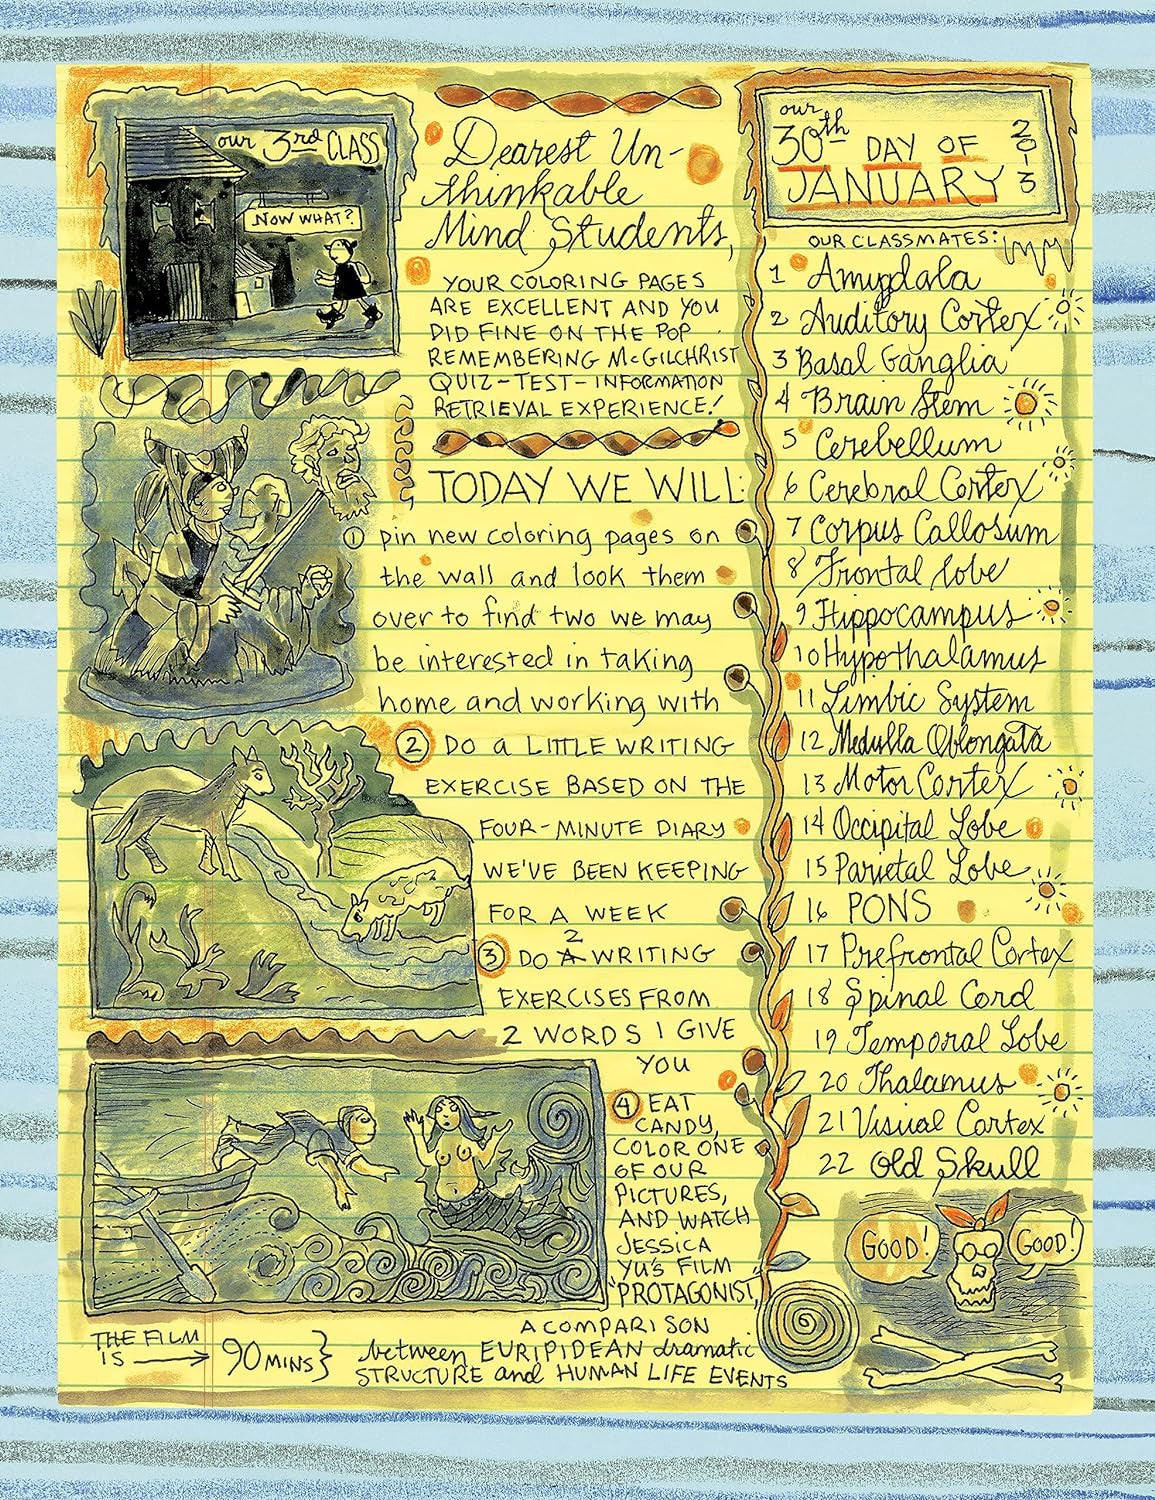 our 3rd CLASS
NOW WHAT?
Dearest Un-
thinkable
Mind Students,
YOUR COLORING PAGES
ARE EXCELLENT AND YOU
DID FINE ON THE POP
REMEMBERING McGILCHRIST
QUIZ-TEST-INFORMATION
RETRIEVAL EXPERIENCE!
TODAY WE WILL:
① pin new coloring pages on
the wall and look them
over to find two we may
be interested in taking
home and working with
② DO A LITTLE WRITING
EXERCISE BASED ON THE
FOUR-MINUTE DIARY
WE'VE BEEN KEEPING
FOR A WEEK
2
③ DO A WRITING
EXERCISES FROM
2 WORDS I GIVE
YOU
④ EAT
CANDY,
COLOR ONE
OF OUR
PICTURES,
AND WATCH
JESSICA
YU'S FILM
"PROTAGONIST,
A COMPARISON
between EURIPIDEAN dramatic
STRUCTURE and HUMAN LIFE EVENTS
THE FILM
IS → 90 MINS}
our
30th DAY OF
JANUARY
20-13
OUR CLASSMATES:
1 Amygdala
2 Auditory Cortex
3 Basal Ganglia
4 Brain Stem
5 Cerebellum
6 Cerebral Cortex
7 Corpus Callosum
8 Frontal Lobe
9 Hippocampus
10 Hypothalamus
11 Limbic System
12 Medulla Oblongata
13 Motor Cortex
14 Occipital Lobe
15 Parietal Lobe
16 PONS
17 Prefrontal Cortex
18 Spinal Cord
19 Temporal Lobe
20 Thalamus
21 Visual Cortex
22 Old Skull
GOOD!
GOOD!